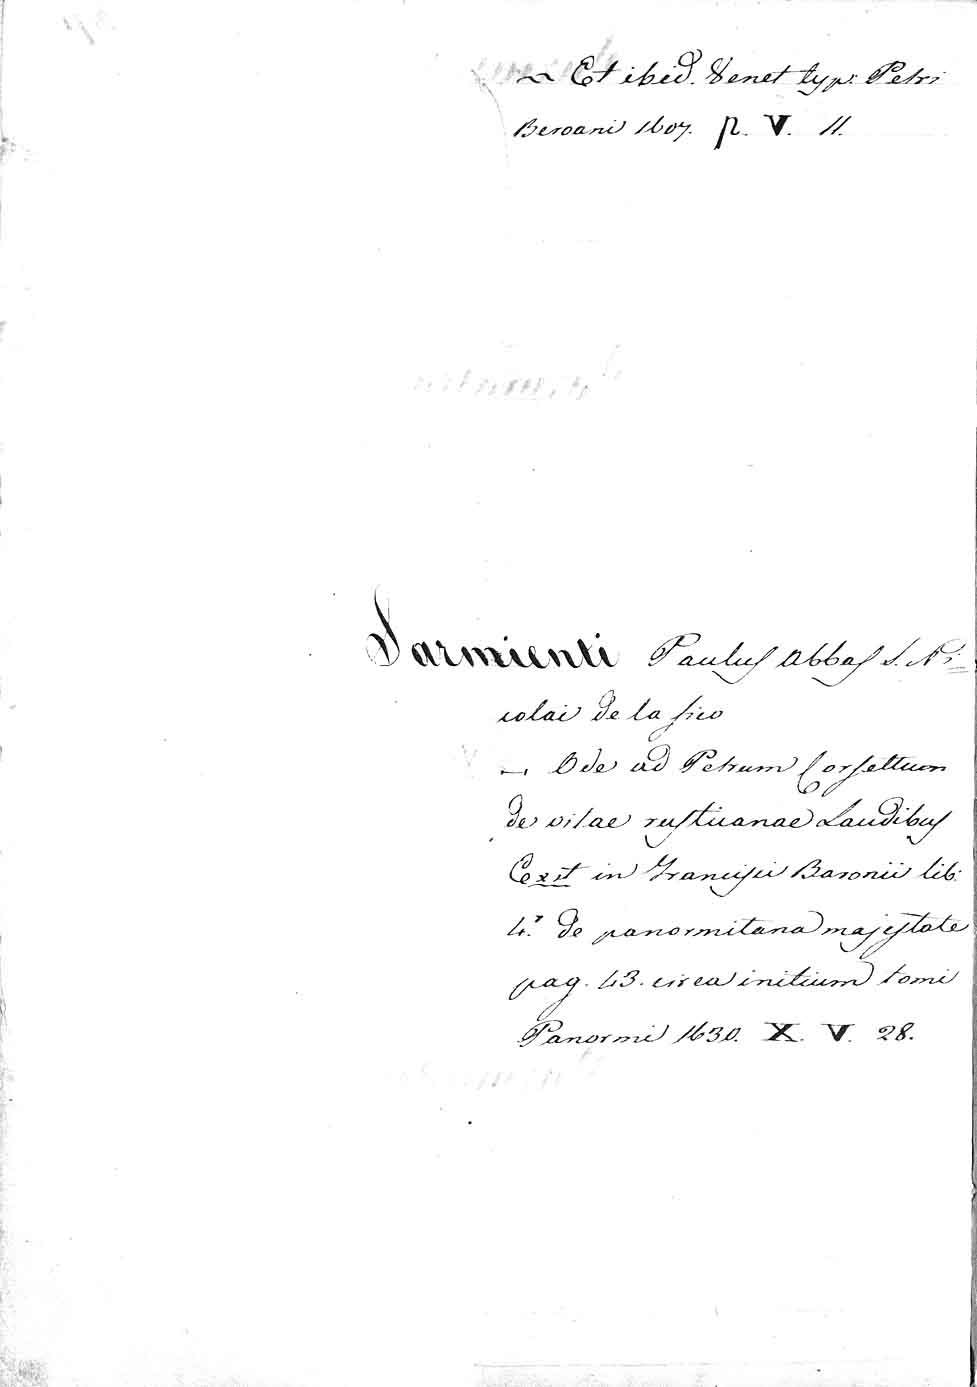 ~ Et ibid. Venet typ: Petri
Beroani 1607. p. V. 11.
Sarmienti Paulus Abbas S. Ni=
colai de la fico
~ Ode ad Petrum Corsettum
de vitae rusticanae Laudibus
Cexst in Francisci Baronii lib:
4.° de panormitana majestate
pag. 43. circa initium tomi
Panormi 1630. X. V. 28.